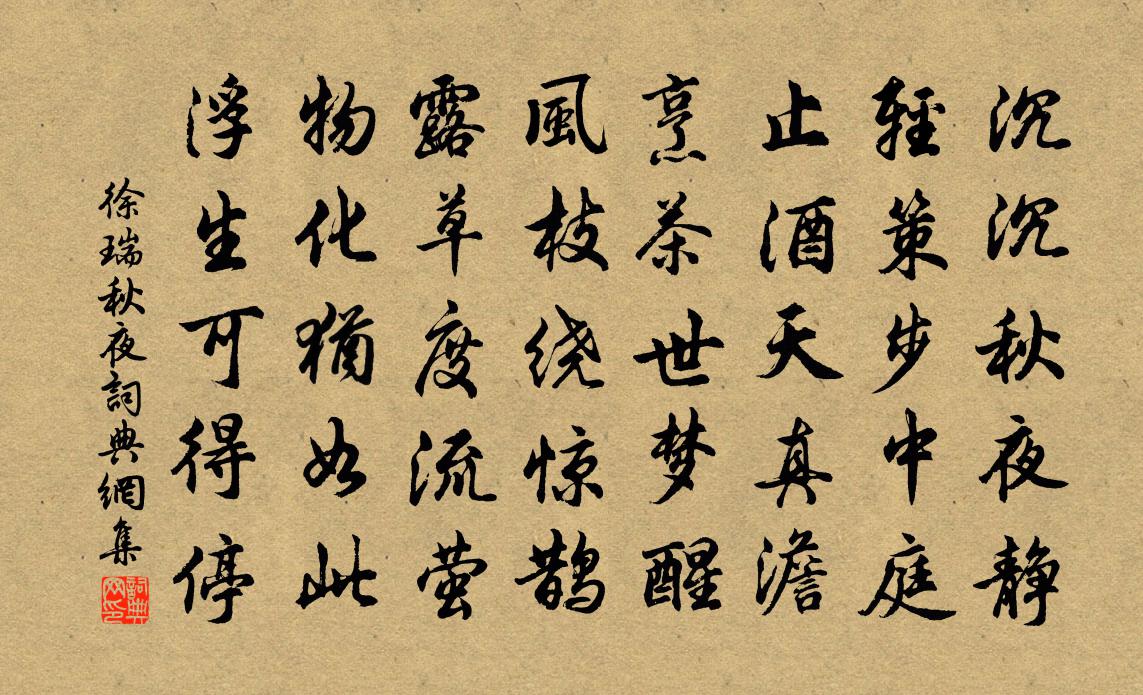 沉沉秋夜静
輕策步中庭
止酒天真澹
烹茶世梦醒
風枝绕惊鹊
露草度流萤
物化猶如此
浮生可得停
徐瑞秋夜詞典網集
詞典网印